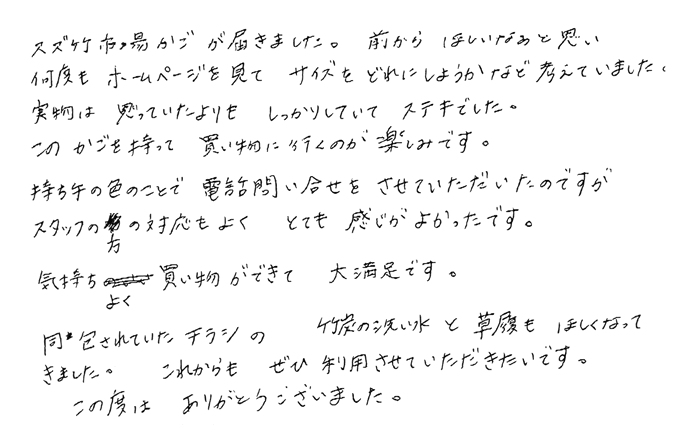 スズ竹市場かごが届きました。前からほしいなぁと思い
何度もホームページを見てサイズをどれにしようかなど考えていました、
実物は思っていたよりもしっかりしていてステキでした。
このかごを持って買い物に行くのが楽しみです。
持ち手の色のことで電話問い合せをさせていただいたのですが
スタッフの方の対応もよくとても感じがよかったです。
気持ちよく買い物ができて大満足です。
同包されていたチラシの竹炭の洗い水と草履もほしくなって
きました。これからもぜひ利用させていただきたいです。
この度はありがとうございました。